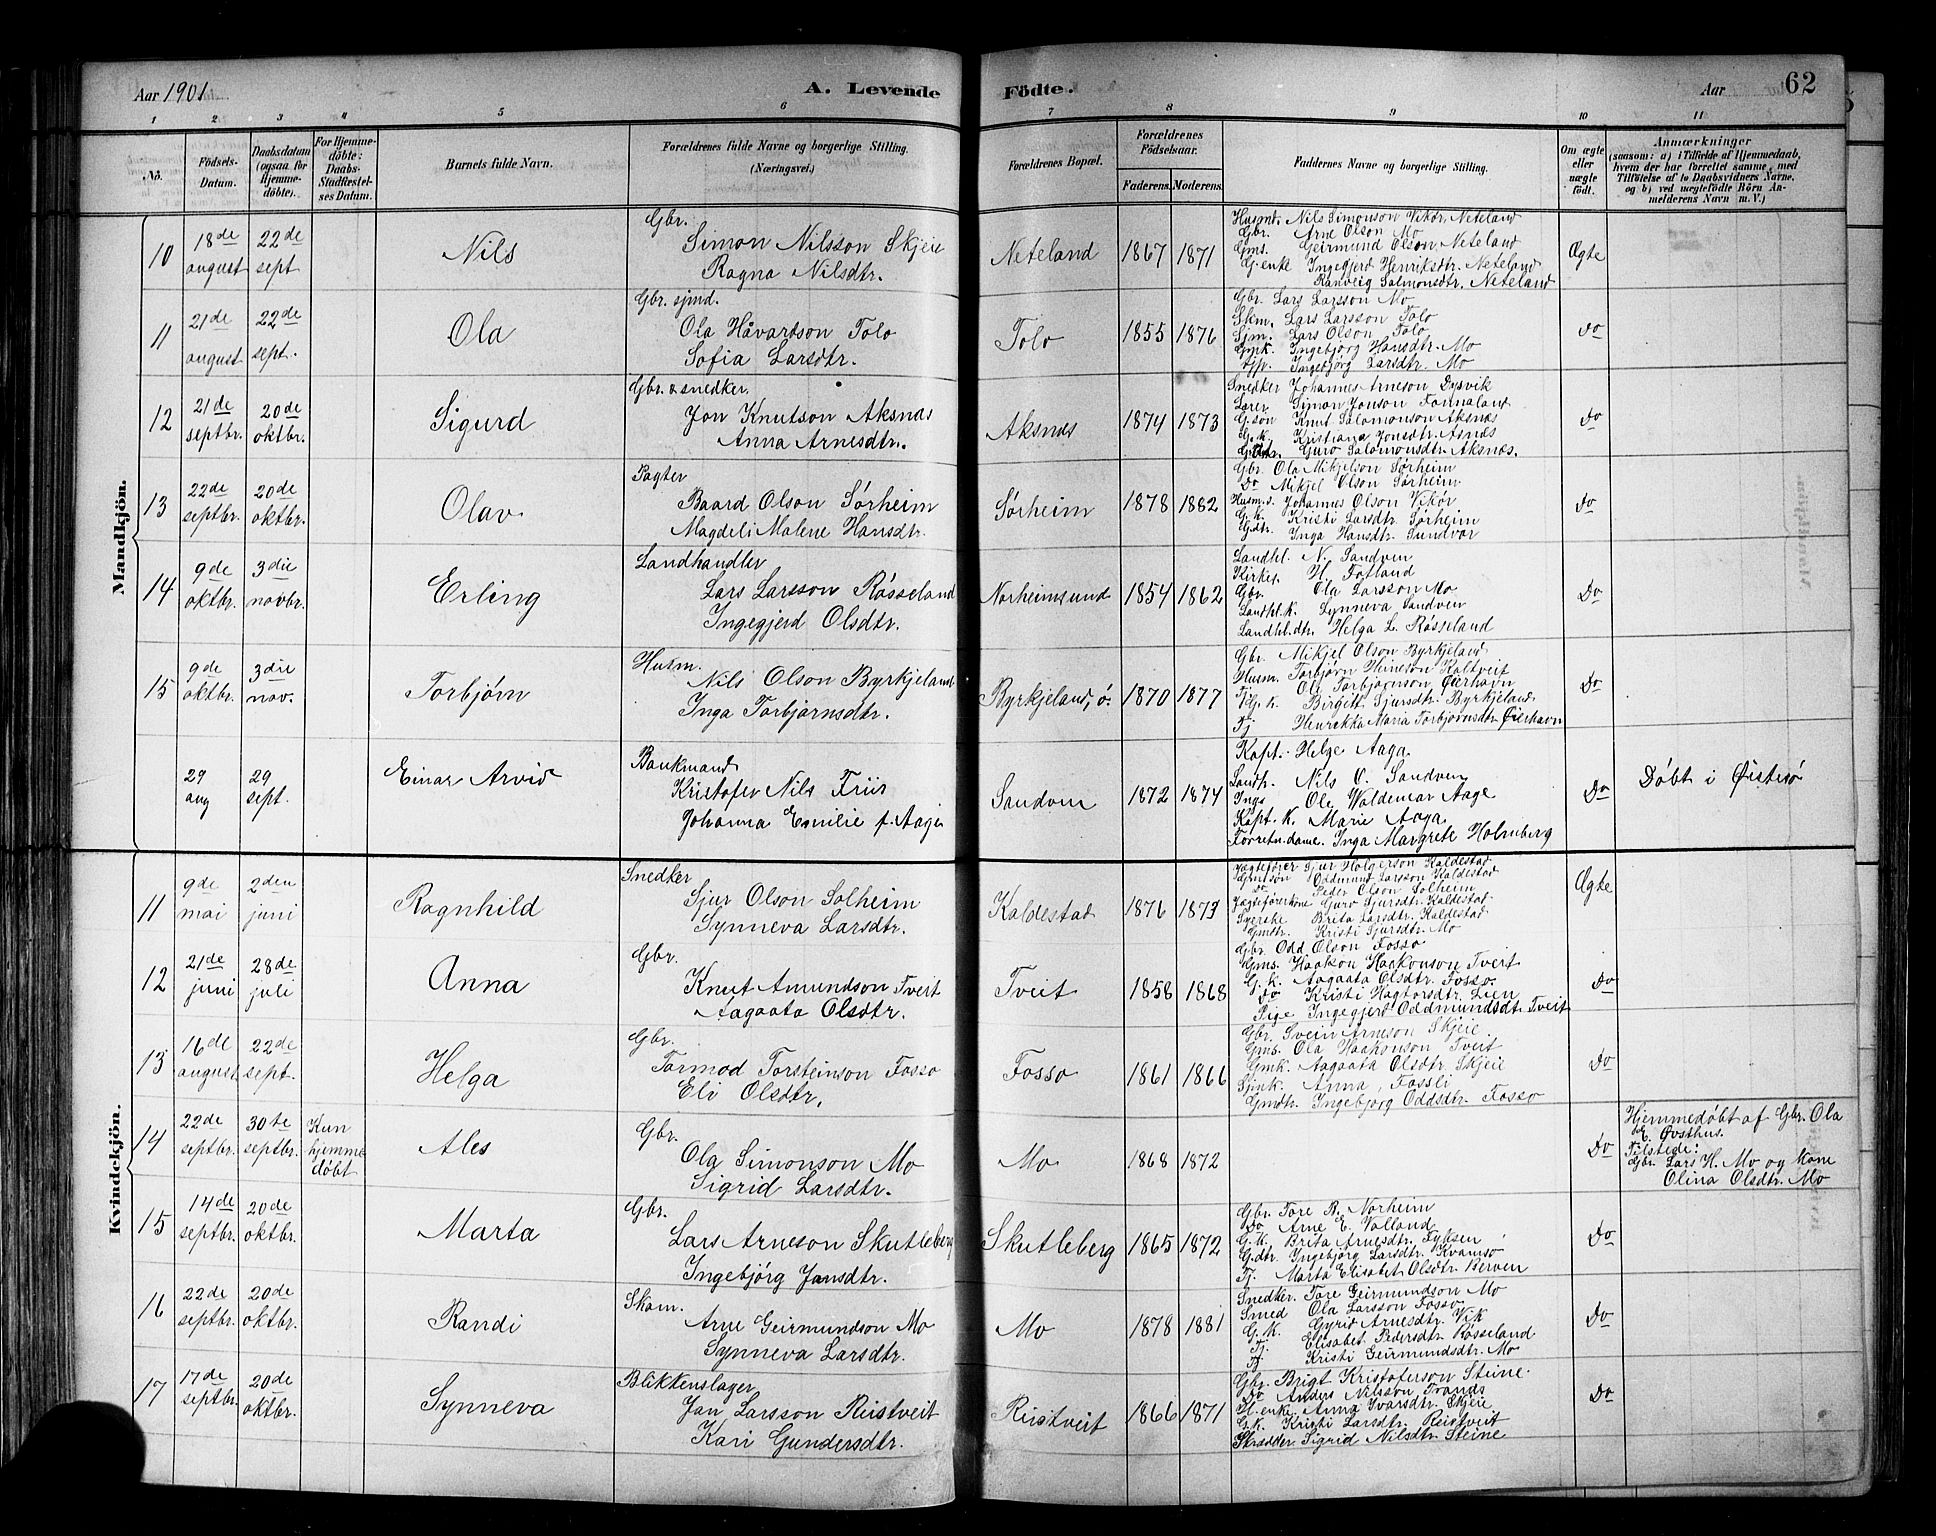 Aar 1901
A. Levende
Födte.
Aar
62
1 2 3 4 5 6 7 8 9 10 11
No.
Födsels-
Datum.
Daabsdatum
(ogsaa for
Hjemme-
döbte).
For Hjemme-
döbte:
Daabs-
Stadfæstel-
ses Datum.
Barnets fulde Navn.
Forældrenes fulde Navne og borgerlige Stilling.
(Næringsvei.)
Forældrenes Bopæl.
Forældrenes
Födselsaar.
Faderens. Moderens.
Faddernes Navne og borgerlige Stilling.
Om ægte
eller
uægte
födt.
Anmærkninger
(saasom: a) i Tilfælde af Hjemmedaab,
hvem der har forrettet samme, med
Tilföielse af to Daabsvidners Navne,
og b) ved uægtefödte Börn An-
melderens Navn m. V.)
Mandkjön.
10
18de
august
22de
sept
Nils
Gbr.
Simon Nilsson Skjeie
Ragna Nilsdtr.
Neteland
1867 1871
Husmd. Nils Simonson Vikør, Neteland
Gbr. Arne Olson Mo
Gms. Geirmund Olson, Neteland
G.enke Ingegjerd Henriksdtr. Neteland
Ranveig Salmonsdtr. Neteland
Ægte
11
21de
august
22de
sept.
Ola
Gbr. sjmd.
Ola Håvardson Tolo
Sofia Larsdtr.
Tolo
1855 1876
Gbr. Lars Larsson Mo
Skm. Lars Larsson Tolo
Sjm. Lars Olson Tolo
Gmk. Ingebjørg Hansdtr. Mo
Ingebjørg Larsdtr. Mo
Do
12
21de
septbr.
20de
oktbr.
Sigurd
Gbr. & snedker
Jon Knutson Aksnæs
Anna Arnesdtr.
Aksnæs
1874 1873
Snedker Johannes Arneson Dysvik
Lærer Simon Jonson Fonnaland
G.søn Knut Salomonson Aksnæs
G.k. Kristiana Jonsdtr. Asnæs
G.dtr. Guro Salomonsdtr. Aksnæs.
Do
13
22de
septbr.
20de
oktbr.
Olav
Pagter
Baard Olson Sørheim
Magdeli Malene Hansdtr.
Sørheim
1878 1882
Gbr. Ola Mikjelson Sørheim
Do Mikjel Olson Sørheim
Husm.s. Johannes Olson Vikør
G.k. Kristi Larsdtr. Sørheim
G.dtr. Inga Hansdtr. Sundvor
Do
14
9de
oktbr.
3die
novbr.
Erling
Landhandler
Lars Larsson Røsseland
Ingegjerd Olsdtr.
Norheimsund
1854 1862
Landhl. N. Sandven
Kirkes. H. Fotland
Gbr. Ola Larsson Mo
Landhl.k. Synneva Sandven
Landhl.dtr. Helga L. Røsseland
Do
15
9de
oktbr.
3die
nov.
Torbjørn
Husm.
Nils Olson Byrkjeland
Inga Torbjørnsdtr.
Byrkjeland, ø.
1870 1877
Gbr. Mikjel Olson Byrkjeland
Husm. Torbjørn Heineson Kaltveit
Ole Torbjørnson Øierhavn
Birgitt Sjursdtr. Byrkjeland
Tj Henrikka Maria Torbjørnsdtr. Øierhavn
Do
29
aug
29
sept.
Einar Arvid
Bankmand
Kristofer Nils Friis
Johanna Emilie f. Aage
Sandven
1872 1874
Kapt. Helge Aaga
Landh. Nils O. Sandven
Ings Ole Waldemar Aage
Kapt. K. Marie Aaga
Forretn.dame. Inga Margrete Holmberg
Do
Döbt i Øistesø
Kvindekjön.
11
9de
mai
2den
juni
Ragnhild
Snedker
Sjur Olson Solheim
Synneva Larsdtr.
Kaldestad
1876 1873
Jagtefører Sjur Holgerson Kaldestad
Oddmund Larsson Kaldestad
Do Peder Olson Solheim
Jagteførerkone Guro Sjursdtr. Kaldestad
Brita Larsdtr. Kaldestad
Gmdtr. Kristi Sjursdtr. Mo
Ægte
12
21de
juni
28de
juli
Anna
Gbr.
Knut Amundson Tveit
Aagaata Olsdtr.
Tveit
1858 1868
Gbr. Odd Olson Fosso
Gms. Haakon Haakonson Tveit
G.k. Aagaata Olsdtr. Fosso
Do Kristi Hagtorsdtr. Lien
Pige Ingegjerd Oddmundsdtr. Tveit
Do
13
16de
august
22de
sept.
Helga
Gbr.
Tormod Torsteinson Fosso
Eli Olsdtr.
Fosso
1861 1866
Gbr. Svein Arneson Skjeie
Gms. Ola Haakonson Tveit
Gmk. Aagaata Olsdtr. Skjeie
Sjmk. Anna, Fossli
Gmdtr. Ingebjørg Oddsdtr. Fosso
Do
14
22de
septbr.
30te
septbr.
Kun
hjemme
döbt
Ales
Gbr.
Ola Simonson Mo
Sigrid Larsdtr.
Mo
1868 1872
Do
Hjemmedöbt af Gbr. Ola
E. Øvsthus.
Tilstede:
Gbr. Lars H. Mo og Kone
Olina Olsdtr. Mo
15
14de
septbr.
20de
oktbr.
Marta
Gbr.
Lars Arneson Skutleberg
Ingebjörg Jansdtr.
Skutleberg
1865 1872
Gbr. Tore B. Norheim
Do Arne E. Valland
G.k. Brita Arnesdtr. Fyksen
G.dtr. Ingebjörg Larsdtr. Kvamsø
Tj. Marta Elisabet Olsdtr. Berven
Do
16
22de
septbr.
20de
oktbr.
Randi
Skom.
Arne Geirmundson Mo
Synneva Larsdtr.
Mo
1878 1881
Snedker. Tore Geirmundson Mo
Smed Ola Larsson Fosso
G.k. Gyrid Arnesdtr. Vik
Tj. Elisabet Pedersdtr Røsseland
Tj. Kristi Geirmundsdtr. Mo
Do
17
17de
septbr.
20de
oktbr.
Synneva
Blikkenslager
Jan Larsson Reistveit
Kari Gundersdtr.
Reistveit
1866 1871
Gbr. Brigt Kristoferson Steine
Do Anders Nilsson Trands
Anna Ivarsdtr. Skjeie
G.k. Kristi Larsdtr. Reistveit
Skrædder Sigrid Nilsdtr. Steine
Do